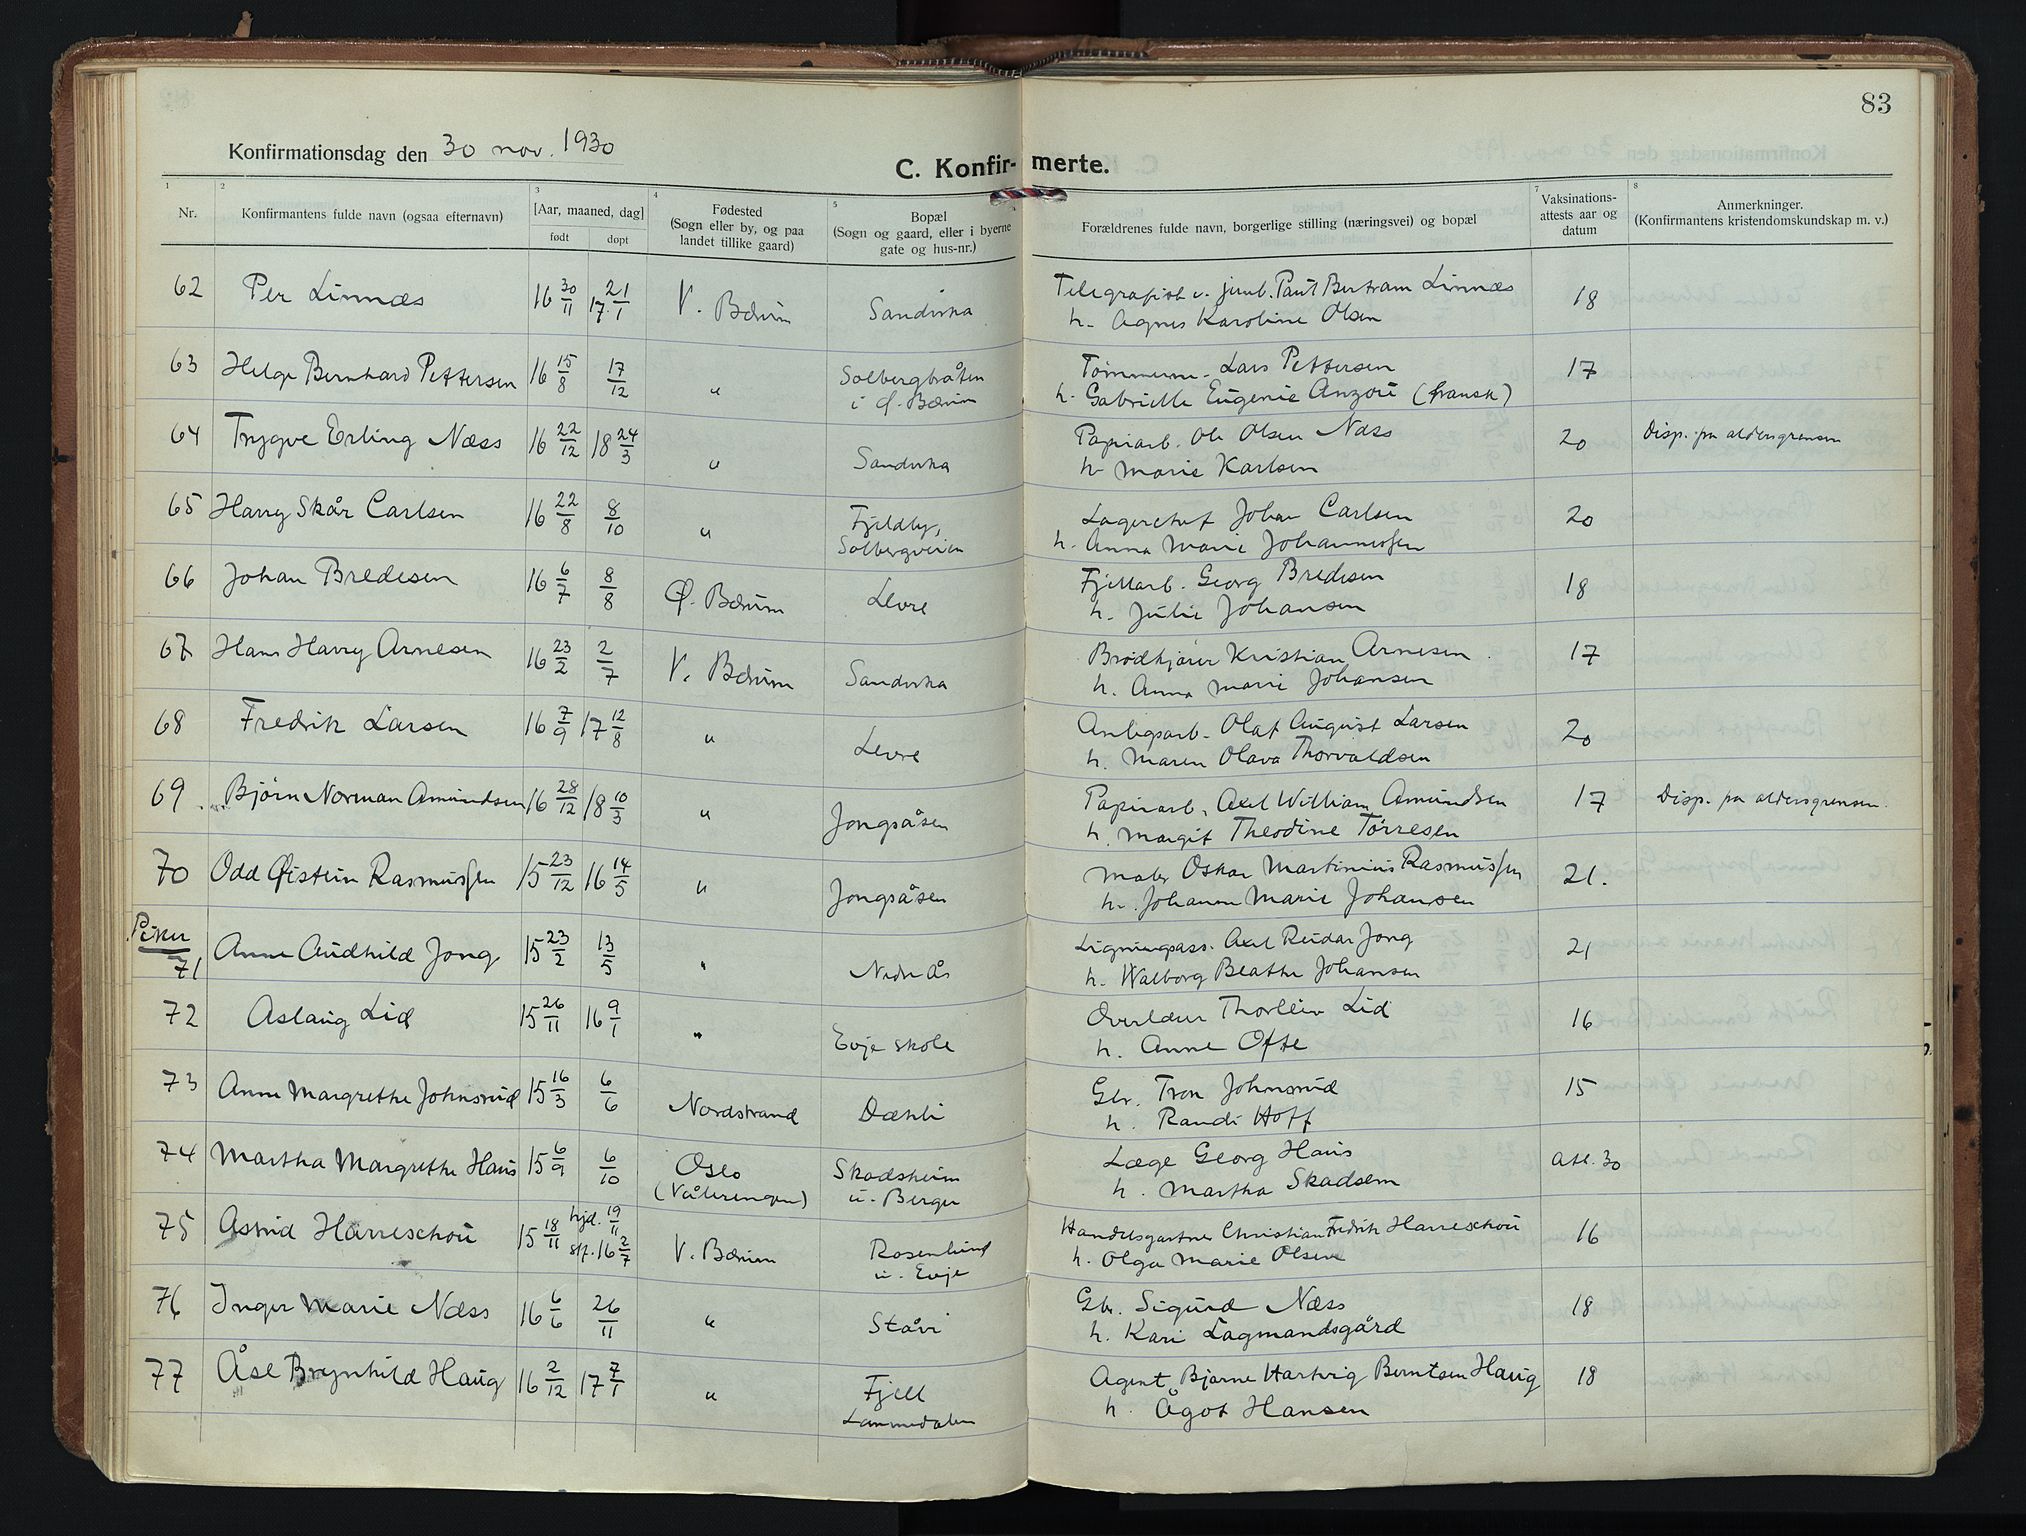 83
Konfirmationsdag den 30 nov. 1930
C. Konfirmerte.
1 2 3 4 5 7 8
Nr. Konfirmantens fulde navn (ogsaa efternavn) [Aar, maaned, dag] født døpt Fødested (Sogn eller by, og paa landet tillike gaard) Bopæl (Sogn og gaard, eller i byerne gate og hus-nr.) Forældrenes fulde navn, borgerlige stilling (næringsvei) og bopæl Vaksinations-attests aar og datum Anmerkninger. (Konfirmantens kristendomskundskap m. v.)
62 Per Linnæs 16 30/11 17 21/1 V. Bærum Sandvika Telegrafist v. jernb. Paul Bertram Linnæs 18
h. Agnes Karoline Olsen
63 Helge Bernhard Pettersen 16 15/8 17/12 " Solbergbråten Tømmerm. Lars Pettersen 17
i Ø. Bærum h. Gabrielle Eugenie Anzoü (fransk)
64 Trygve Erling Næss 16 22/12 18 24/3 " Sandvika Papirarb. Ole Olsen Næss 20 Disp. fra aldersgrensen
h. Marie Karlsen
65 Harry Skår Carlsen 16 22/8 8/10 " Fjeldby, Lagerchef Johan Carlsen 20
Solbergveien h. Anna Marie Johannessen
66 Johan Bredesen 16 6/7 8/8 Ø. Bærum Levre Fjellarb. Georg Bredesen 18
h. Julie Johansen
67 Hans Harry Arnesen 16 23/2 2/7 V. Bærum Sandvika Brødkjører Kristian Arnesen 17
h. Anna Marie Johansen
68 Fredrik Larsen 16 7/9 17 12/8 " Levre Anlegsarb. Olaf August Larsen 20
h. Maren Olava Thorvaldsen
69 Bjørn Norman Amundsen 16 28/12 18 10/3 " Jongsåsen Papirarb. Axel William Amundsen 17 Disp. fra aldersgrensen.
h. Margit Theodine Tørresen
70 Odd Øistein Rasmussen 15 23/12 16 14/5 " Jongsåsen Maler Oskar Martinius Rasmussen 21.
h. Johanne Marie Johansen
Piker
71 Anne Audhild Jong 15 23/2 13/5 " Nedre Ås Ligningsass. Axel Reidar Jong 21
h. Walborg Beathe Johansen
72 Aslaug Lid 15 26/11 16 9/1 " Evje skole Overlærer Thorleiv Lid 16
h. Anne Ofte
73 Anne Margrethe Johnsrud 15 16/3 6/6 Nordstrand Dæhli Gbr. Tron Johnsrud 15
h. Randi Hoff
74 Martha Margrethe Haus 15 6/9 6/10 Oslo Skadsheim Læge Georg Haus Att. 30
(Vålerengen) u. Berger h. Martha Skadsem
75 Astrid Harreschou 15 18/11 hjd. 19/11 V. Bærum Rosenlund Handelsgartner Christian Fredrik Harreschou 16
stf. 16 2/7 u. Evje h. Olga Marie Olsen
76 Inger Marie Næss 16 6/6 26/11 " Ståvi Gbr. Sigurd Næss 18
h. Kari Lagmandsgård
77 Åse Brynhild Haug 16 2/12 17 7/1 " Fjell Agent Bjarne Hartvig Berntsen Haug 18
Lommedalen h. Ågot Hansen